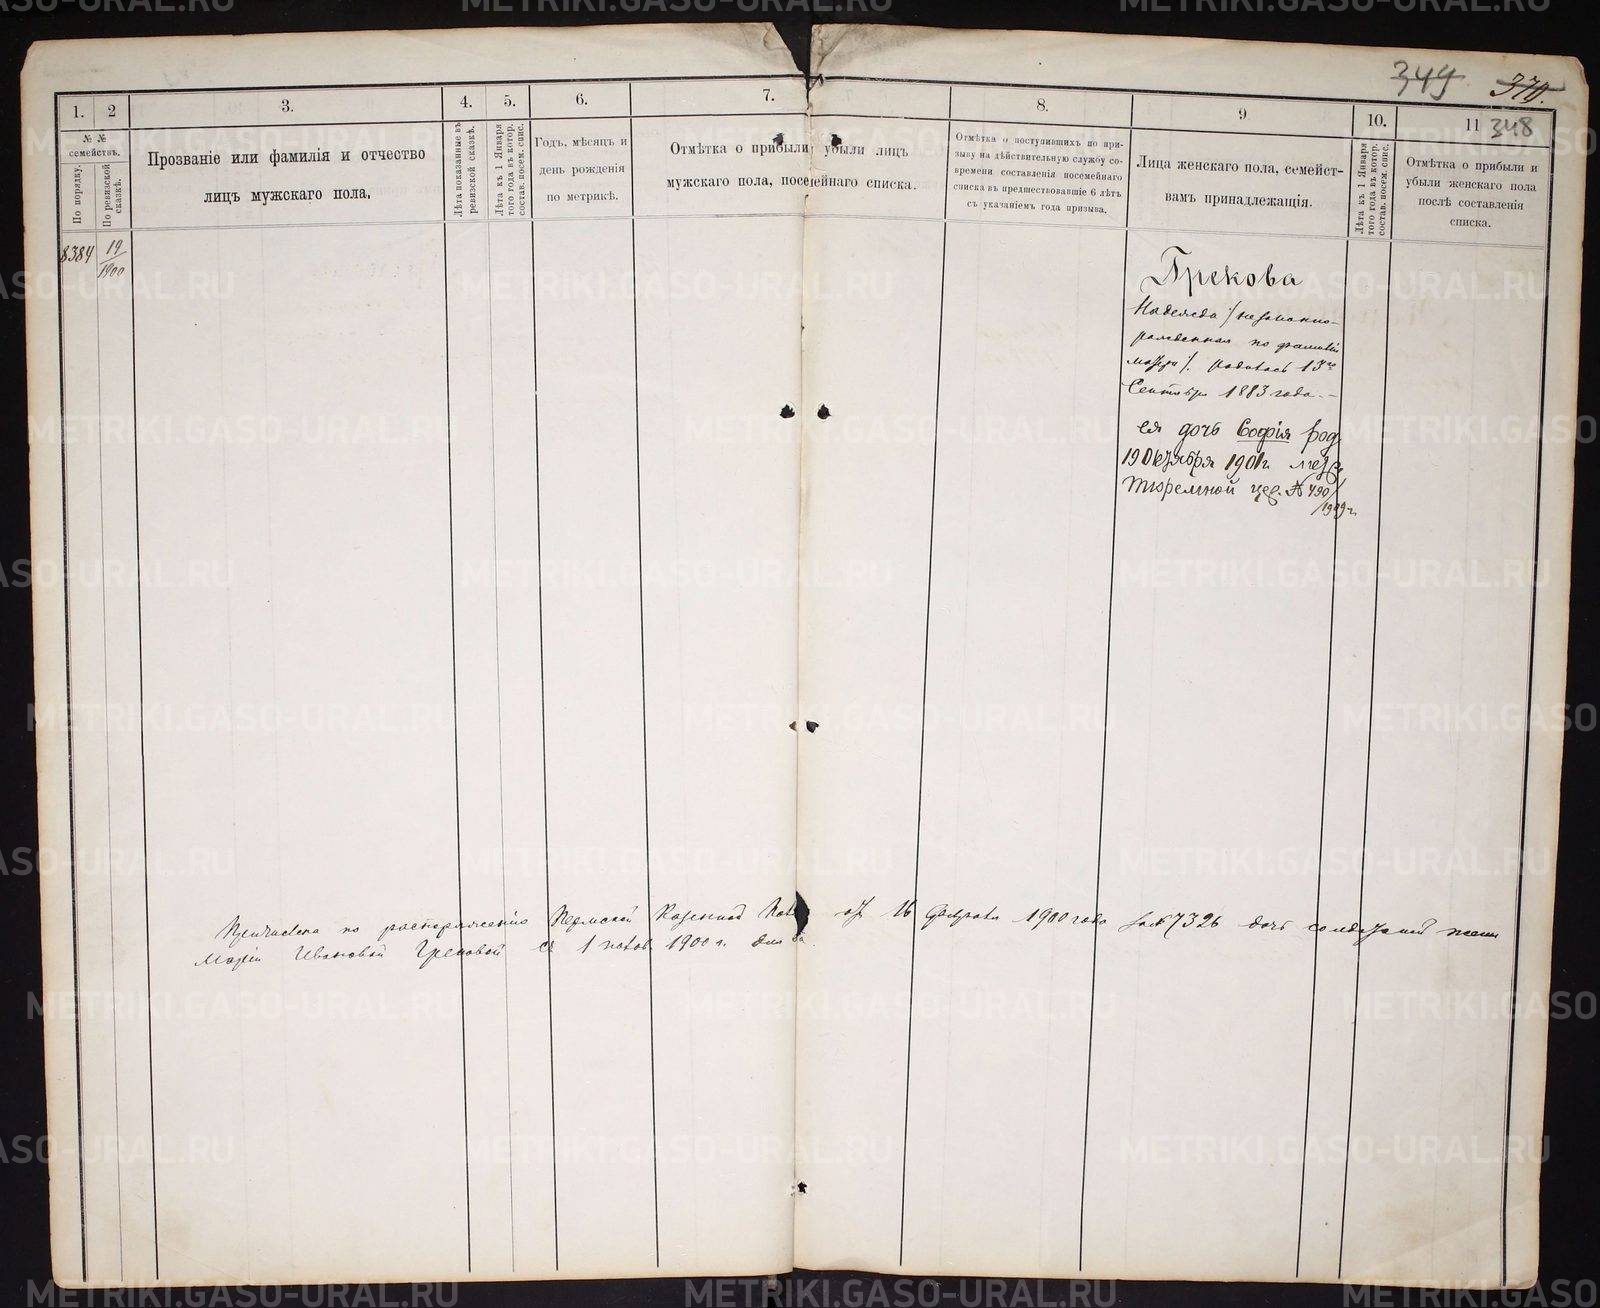 349 370.
1.
2
3.
4.
5.
6.
7.
8.
9
10.
11 348
№ №
семействъ.
По порядку.
По ревизской
сказкѣ.
Прозваніе или фамилія и отчество
лицъ мужскаго пола.
Лѣта показанные въ
ревизской сказкѣ.
Лѣта къ 1 Января
того года въ котор.
состав. посем. спис.
Годъ, мѣсяцъ и
день рожденія
по метрикѣ.
Отмѣтка о прибыли убыли лицъ
мужскаго пола, посемейнаго списка.
Отмѣтка о поступившихъ по при-
зыву на дѣйствительную службу со-
времени составленія посемейнаго
списка въ предшествовавшіе 6 лѣтъ
съ указаніемъ года призыва.
Лица женскаго пола, семейст-
вамъ принадлежащія.
Лѣта къ 1 Января
того года въ котор.
состав. посем. спис.
Отмѣтка о прибыли и
убыли женскаго пола
послѣ составленія
списка.
8384
19
1900
Грекова
Надежда / незаконно-
рожденная по фамиліи
матери /. родилась 13го
Сентября 1883 года. -
ея дочь Софія род.
19 Октября 1901г. метр.
тюремной цер. № 490/
1909 г.
Причислена по распоряженію Пермской Казенной Пала от 16 Августа 1900 года за № 7326 дочь солдатской жены
Маріи Ивановой Грековой съ 1 полов. 1900 г.
METRIKI.GASO-URAL.RU